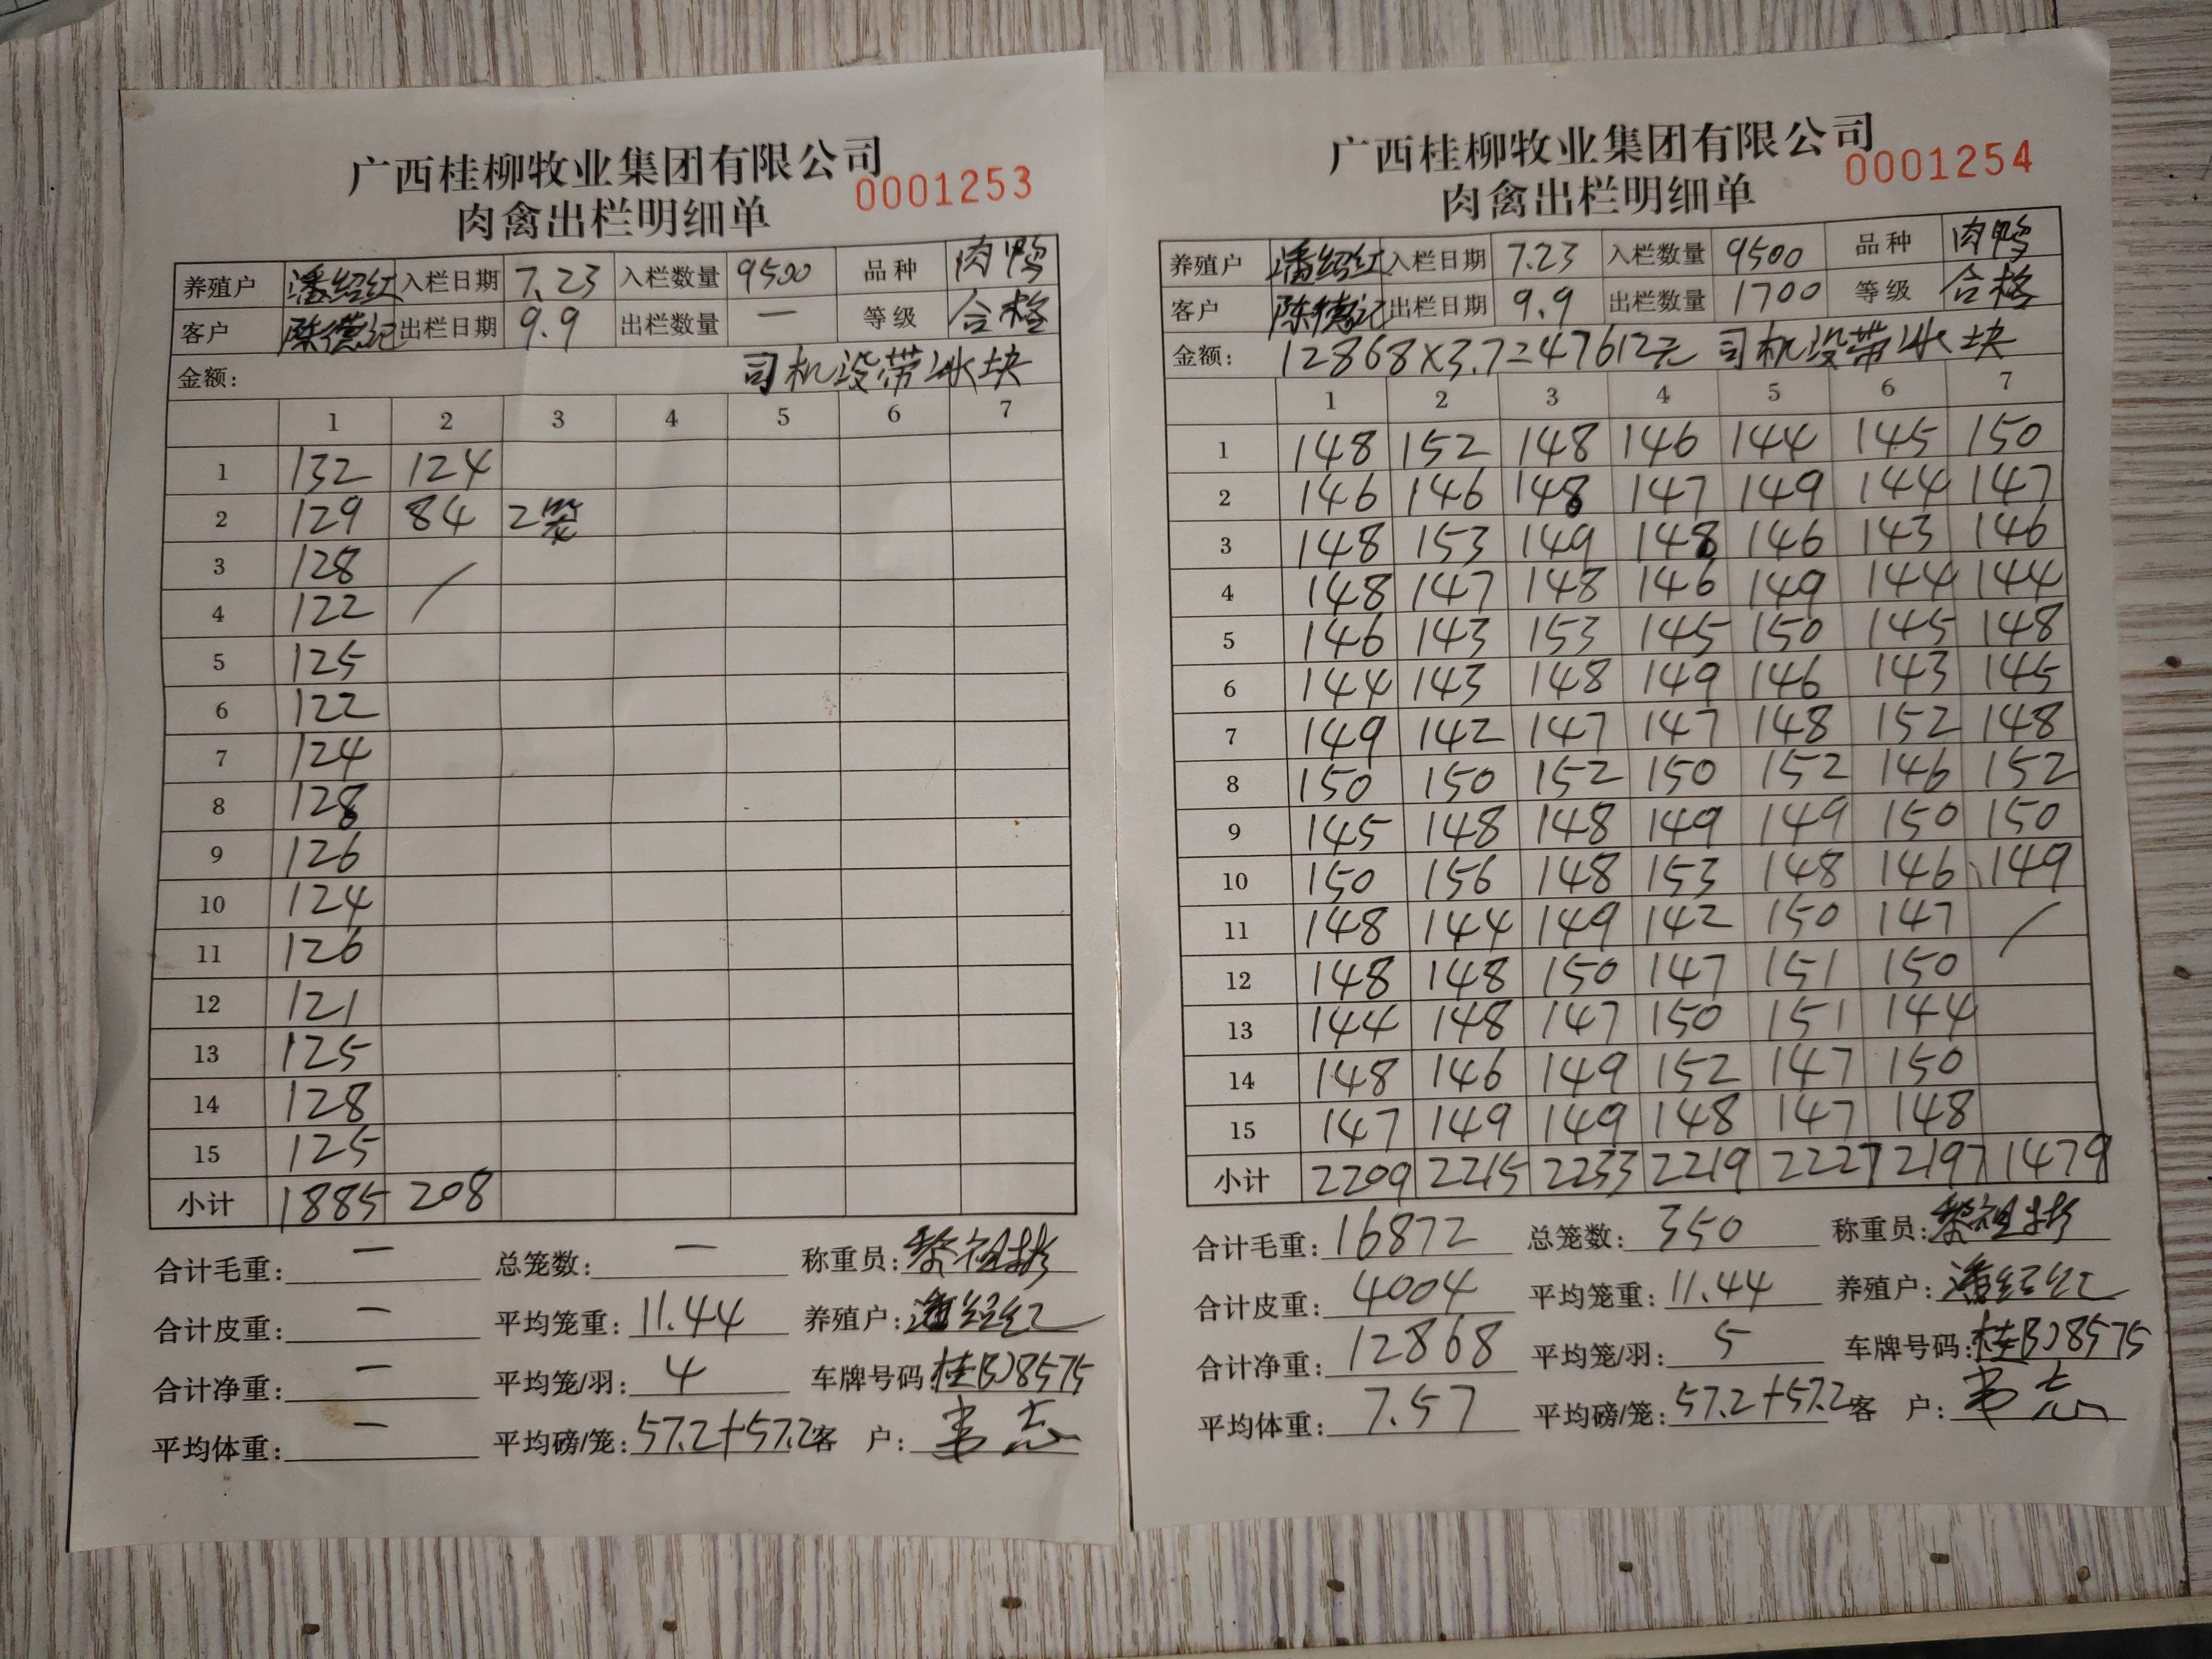 广西桂柳牧业集团有限公司
0001253
肉禽出栏明细单
养殖户 潘绍红 入栏日期 7.23 入栏数量 9500 品种 肉鸭
客户 陈德记 出栏日期 9.9 出栏数量 — 等级 合格
金额: 司机没带冰块
1 2 3 4 5 6 7
1 132 124
2 129 84 2笼
3 128 /
4 122
5 125
6 122
7 124
8 128
9 126
10 124
11 126
12 121
13 125
14 128
15 125
小计 1885 208
合计毛重: — 总笼数: — 称重员: 黎祖彬
合计皮重: — 平均笼重: 11.44 养殖户: 潘绍红
合计净重: — 平均笼/羽: 4 车牌号码: 桂BJ8575
平均体重: — 平均磅/笼: 57.2+57.2 客 户: 韦志
广西桂柳牧业集团有限公司
0001254
肉禽出栏明细单
养殖户 潘绍红 入栏日期 7.23 入栏数量 9500 品种 肉鸭
客户 陈德记 出栏日期 9.9 出栏数量 1700 等级 合格
金额: 12868×3.7=47612元 司机没带冰块
1 2 3 4 5 6 7
1 148 152 148 146 144 145 150
2 146 146 148 147 149 144 147
3 148 153 149 148 146 143 146
4 148 147 148 146 149 144 144
5 146 143 153 145 150 145 148
6 144 143 148 149 146 143 145
7 149 142 147 147 148 152 148
8 150 150 152 150 152 146 152
9 145 148 148 149 149 150 150
10 150 156 148 153 148 146 149
11 148 144 149 142 150 147 /
12 148 148 150 147 151 150
13 144 148 147 150 151 144
14 148 146 149 152 147 150
15 147 149 149 148 147 148
小计 2209 2215 2233 2219 2227 2197 1479
合计毛重: 16872 总笼数: 350 称重员: 黎祖彬
合计皮重: 4004 平均笼重: 11.44 养殖户: 潘绍红
合计净重: 12868 平均笼/羽: 5 车牌号码: 桂BJ8575
平均体重: 7.57 平均磅/笼: 57.2+57.2 客 户: 韦志